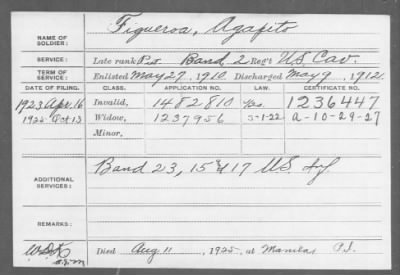 NAME OF SOLDIER: Figueroa, Agapito
SERVICE: Late rank Pvt Band 2 Reg't US Cav.
TERM OF SERVICE: Enlisted May 27, 1910, Discharged May 9, 1912.
DATE OF FILING. CLASS. APPLICATION NO. LAW. CERTIFICATE NO.
1923 Apr. 16 Invalid, 1482810 1236447
1925 Oct 13 Widow, 1237956 5-1-22 A-10-29-27
Minor,
ADDITIONAL SERVICES: Band 23, 15 & 17 U.S. Inf
REMARKS:
Died Aug 11, 1925, at Manila P.I.